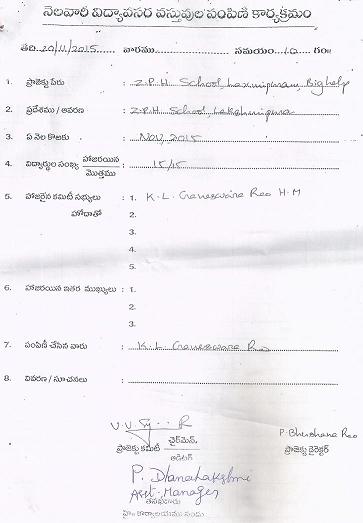 నెలవారీ విద్యావసర వస్తువుల పంపిణి కార్యక్రమం
తేది: 20/11/2015 వారము సమయం: 10 గం॥
1. ప్రాజెక్టు పేరు : Z.P.H School, Laxmipuram, Bighelp
2. ప్రదేశము / ఆవరణ : Z.P.H School, Lakshmipura
3. ఏ నెల కొఱకు : Nov, 2015
4. విద్యార్థుల సంఖ్య హాజరయిన / మొత్తము : 15/15
5. హాజరైన కమిటీ సభ్యులు : 1. K. L. Craneswara Rao H.M
హోదాతో 2.
3.
4.
5.
6. హాజరయిన ఇతర ముఖ్యులు : 1.
2.
3.
7. పంపిణీ చేసిన వారు : K. L. Craneswara Rao
8. వివరణ / సూచనలు :
P. Bhushana Rao
ప్రాజెక్టు కమిటీ ఛైర్మెన్, ప్రాజెక్టు డైరెక్టర్
ఆడిటర్
P. Dhanalakshmi
Asst. Manager